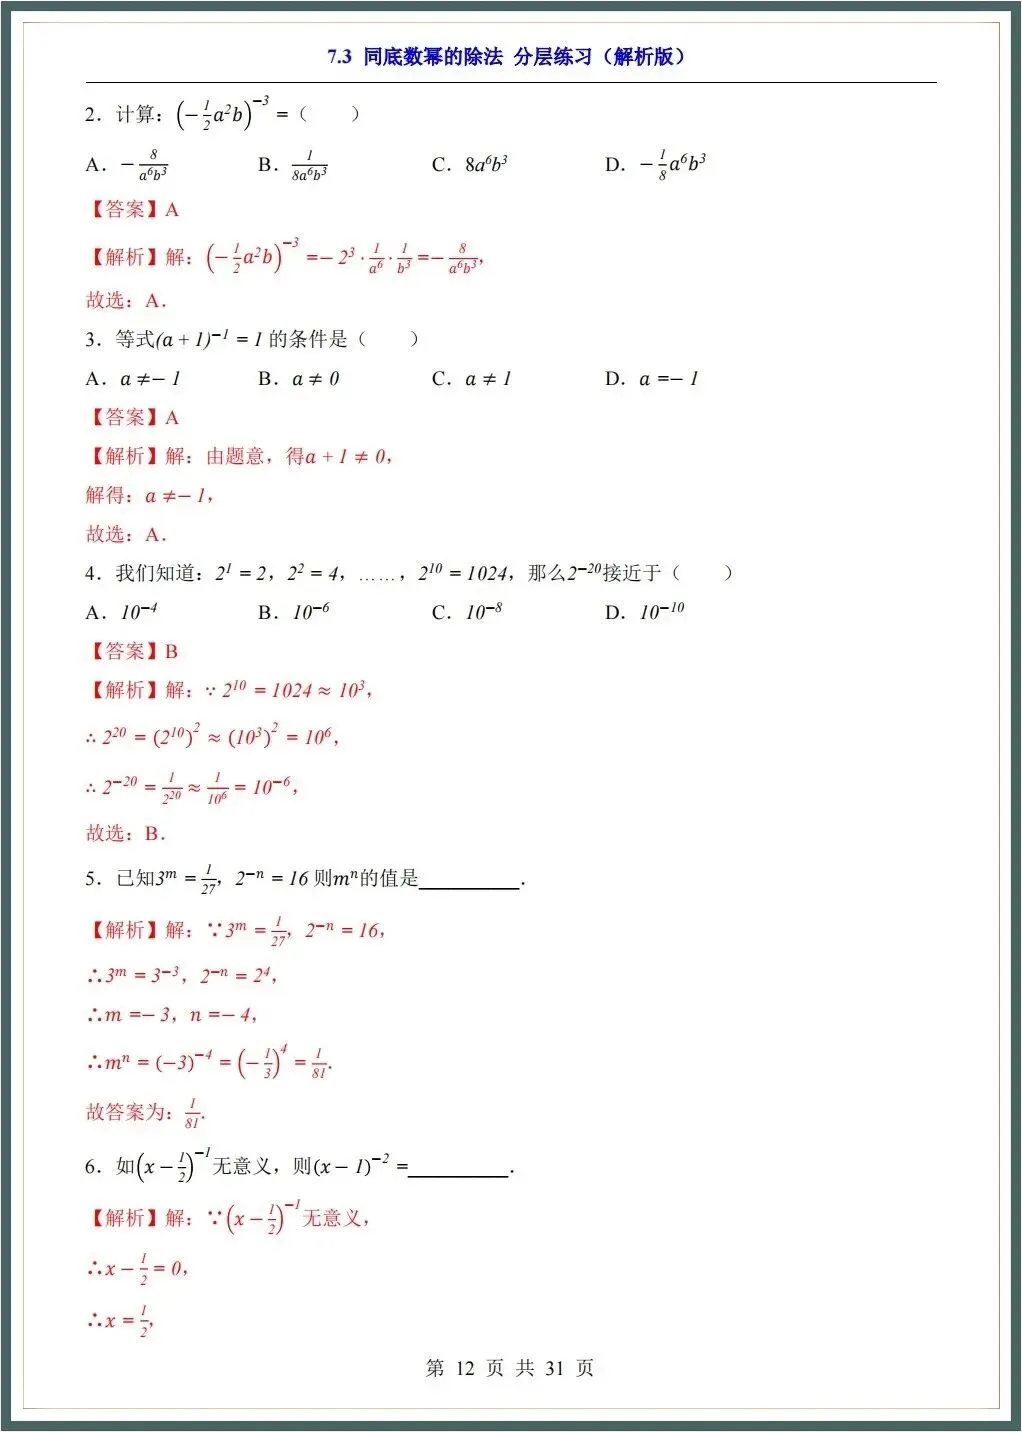 7.3 同底数幂的除法 分层练习（解析版）
2．计算：(−1/2 a²b)⁻³ =（　　）
A．− 8/(a⁶b³)　B．1/(8a⁶b³)　C．8a⁶b³　D．− 1/8 a⁶b³
【答案】A
【解析】解：(−1/2 a²b)⁻³ =− 2³ · 1/a⁶ · 1/b³ =− 8/(a⁶b³)，
故选：A．
3．等式(a + 1)⁻¹ = 1 的条件是（　　）
A．a ≠− 1　B．a ≠ 0　C．a ≠ 1　D．a =− 1
【答案】A
【解析】解：由题意，得a + 1 ≠ 0，
解得：a ≠− 1，
故选：A．
4．我们知道：2¹ = 2，2² = 4，……，2¹⁰ = 1024，那么2⁻²⁰接近于（　　）
A．10⁻⁴　B．10⁻⁶　C．10⁻⁸　D．10⁻¹⁰
【答案】B
【解析】解：∵ 2¹⁰ = 1024 ≈ 10³，
∴ 2²⁰ = (2¹⁰)² ≈ (10³)² = 10⁶，
∴ 2⁻²⁰ = 1/2²⁰ ≈ 1/10⁶ = 10⁻⁶，
故选：B．
5．已知3ᵐ = 1/27，2⁻ⁿ = 16 则mⁿ的值是__________．
【解析】解：∵3ᵐ = 1/27，2⁻ⁿ = 16，
∴3ᵐ = 3⁻³，2⁻ⁿ = 2⁴，
∴m =− 3，n =− 4，
∴mⁿ = (−3)⁻⁴ = (−1/3)⁴ = 1/81.
故答案为：1/81.
6．如(x − 1/2)⁻¹无意义，则(x − 1)⁻² =__________．
【解析】解：∵(x − 1/2)⁻¹无意义，
∴x − 1/2 = 0，
∴x = 1/2，
第 12 页 共 31 页